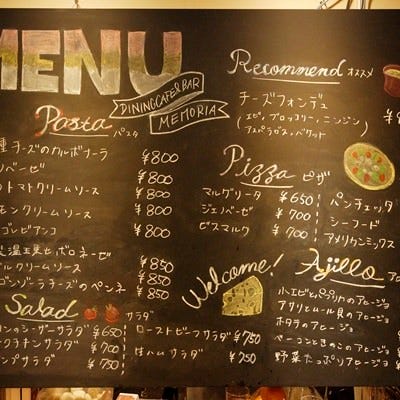 MENU
DINING CAFE & BAR
MEMORIA
Pasta パスタ
種チーズのカルボナーラ ¥800
ノベーゼ ¥800
トマトクリームソース ¥800
モンクリームソース ¥800
ゴルビアンコ ¥800
温玉 ボロネーゼ ¥850
クリームソース ¥850
ゴンゾーラチーズのペンネ ¥850
Salad サラダ
シーザーサラダ ¥650
クチキンサラダ 700
ンプサラダ 750
ローストビーフサラダ ¥750
生ハムサラダ ¥750
Recommend オススメ
チーズフォンデュ
(エビ、ブロッコリー、ニンジン
アスパラガス、バケット)
Pizza ピザ
マルゲリータ ¥650
ジェノベーゼ ¥700
ビスマルク ¥700
パンチェッタ
シーフード
アメリカンミックス
Welcome!
Ajillo
小エビとパプリカのアヒージョ
アサリとムール貝のアヒージョ
ホタテのアヒージョ
ベーコンときのこのアヒージョ
野菜たっぷりアヒージョ